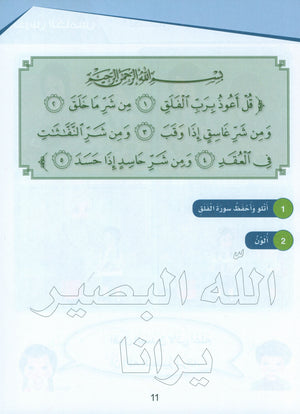 بِسْمِ اللَّهِ الرَّحْمَٰنِ الرَّحِيمِ
﴿ قُلْ أَعُوذُ بِرَبِّ الْفَلَقِ ١ مِن شَرِّ مَا خَلَقَ ٢
وَمِن شَرِّ غَاسِقٍ إِذَا وَقَبَ ٣ وَمِن شَرِّ النَّفَّاثَاتِ
فِي الْعُقَدِ ٤ وَمِن شَرِّ حَاسِدٍ إِذَا حَسَدَ ٥ ﴾
1 أَتْلو وَأَحْفَظُ سورَةَ الْفَلَقِ
2 أُلَوِّنُ
اللّه البصير
يرانا
11